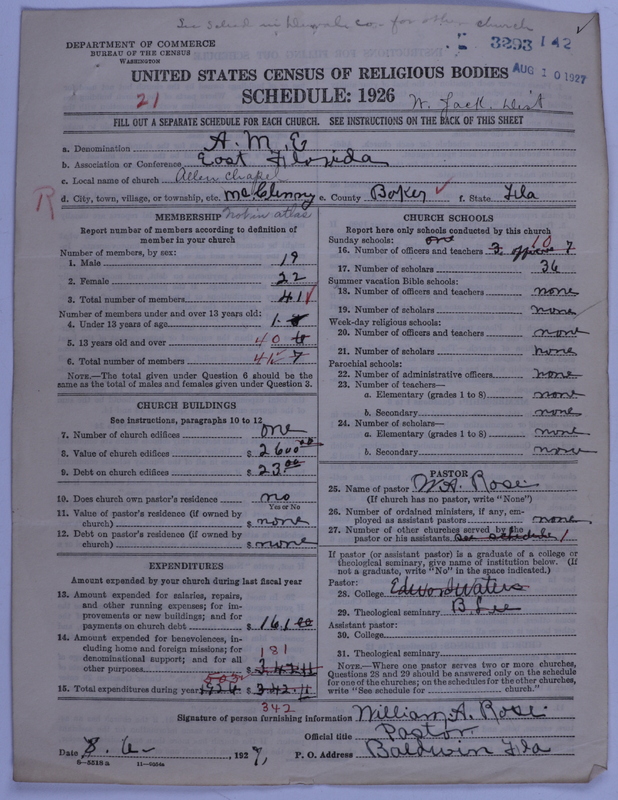 See Sched in Duval co. for other church
3293 142
AUG 10 1927
DEPARTMENT OF COMMERCE
BUREAU OF THE CENSUS
WASHINGTON
UNITED STATES CENSUS OF RELIGIOUS BODIES
SCHEDULE: 1926
21
W. Jack. Dist
FILL OUT A SEPARATE SCHEDULE FOR EACH CHURCH. SEE INSTRUCTIONS ON THE BACK OF THIS SHEET
a. Denomination A.M.E
b. Association or Conference East Florida
c. Local name of church Allen chapel
R
d. City, town, village, or township, etc. McClenny e. County Baker ✓ f. State Fla
MEMBERSHIP not in atlas
Report number of members according to definition of
member in your church
Number of members, by sex:
1. Male 19
2. Female 22
3. Total number of members 41 ✓
Number of members under and over 13 years old:
4. Under 13 years of age 1
5. 13 years old and over 40
6. Total number of members 41
NOTE.—The total given under Question 6 should be
same as the total of males and females given under Question 3.
CHURCH BUILDINGS
See instructions, paragraphs 10 to 12
7. Number of church edifices one
8. Value of church edifices $ 2600.00
9. Debt on church edifices $ 23.00
10. Does church own pastor's residence no
Yes or No
11. Value of pastor's residence (if owned by
church) $ none
12. Debt on pastor's residence (if owned by
church) $ none
EXPENDITURES
Amount expended by your church during last fiscal year
13. Amount expended for salaries, repairs,
and other running expenses; for im-
provements or new buildings; and for
payments on church debt $ 161.00
14. Amount expended for benevolences, in-
cluding home and foreign missions; for
denominational support; and for all
other purposes $ 181
342.11
503
15. Total expenditures during year 1926 $ 342.11
342
CHURCH SCHOOLS
Report here only schools conducted by this church
Sunday schools: one
16. Number of officers and teachers 3 officers 7 10
17. Number of scholars 36
Summer vacation Bible schools:
18. Number of officers and teachers none
19. Number of scholars none
Week-day religious schools:
20. Number of officers and teachers none
21. Number of scholars none
Parochial schools:
22. Number of administrative officers none
23. Number of teachers—
a. Elementary (grades 1 to 8) none
b. Secondary none
24. Number of scholars—
a. Elementary (grades 1 to 8) none
b. Secondary none
PASTOR
25. Name of pastor W.A. Rose
(If church has no pastor, write "None")
26. Number of ordained ministers, if any, em-
ployed as assistant pastors none
27. Number of other churches served by the
pastor or his assistants see schedule 1
If pastor (or assistant pastor) is a graduate of a college or
theological seminary, give name of institution below. (If
not a graduate, write "No" in the space indicated.)
Pastor:
28. College Edward Waters
29. Theological seminary B. Lee
Assistant pastor:
30. College
31. Theological seminary
NOTE.—Where one pastor serves two or more churches,
Questions 28 and 29 should be answered only on the schedule
for one of the churches; on the schedules for the other churches,
write "See schedule for church."
Signature of person furnishing information William A. Rose
Official title Pastor
Date 8. 6 , 1927, P. O. Address Baldwin Fla
8—5518a 11—6654a